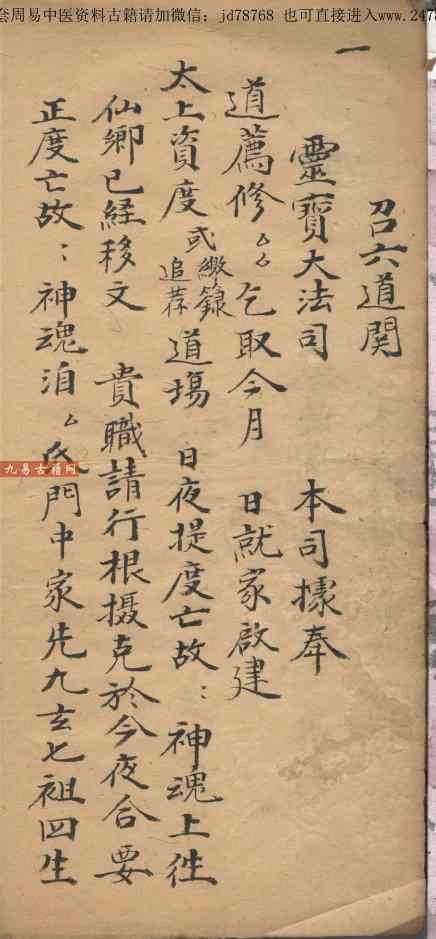 套周易中医资料古籍请加微信：jd78768 也可直接进入www.247
一
召六道関
靈寶大法司 本司據奉
道薦修厶厶乞取今月 日就家啟建
太上資度或繳籙追荐道場 日夜提度亡故：神魂上徃
仙鄉已経移文 貴職請行根摄克於今夜合要
正度亡故：神魂洎厶氏門中家先九玄七祖四生
九易古籍网